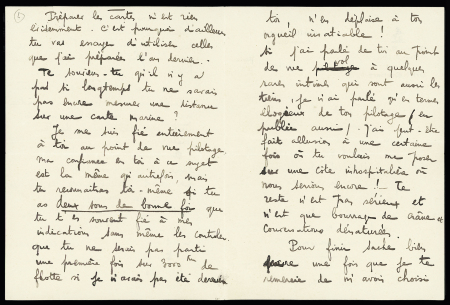 Préparer les cartes n'est rien
évidemment. C'est pourquoi d'ailleurs
tu vas essayer d'utiliser celles
que j'ai préparées l'an dernier.
Te souviens-tu qu'il n'y a
pas si longtemps tu ne savais
pas encore mesurer une distance
sur une carte marine ?
Je me suis fié entièrement
à toi au point de vue pilotage,
ma confiance en toi à ce sujet
est la même qu'autrefois, mais
tu reconnaîtras toi-même si tu
as deux sous de bonne foi que
tu t'es souvent fié à mes
indications sans même les contrôler
que tu ne serais pas parti
une première fois sur 3000 km de
flotte si je n'avais pas été derrière
toi, n'en déplaise à ton
orgueil insatiable !
Si j'ai parlé de toi au point
de vue vol à quelques
rares intimes qui sont aussi les
tiens, je n'ai parlé qu'en termes
élogieux de ton pilotage (en
public aussi). J'ai peut-être
fait allusion à une certaine
fois où tu voulais me poser
sur une côte inhospitalière où
nous serions encore ! Le
reste n'est pas sérieux et
n'est que bourrage de crâne et
conversations dénaturées.
Pour finir sache bien
une fois que je te
remercie de m'avoir choisi